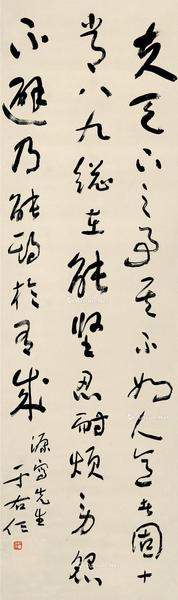 夫天下之事其不如人意者固十
常八九總在能堅忍耐煩勞怨
不避乃能期於有成
源先生
于右任